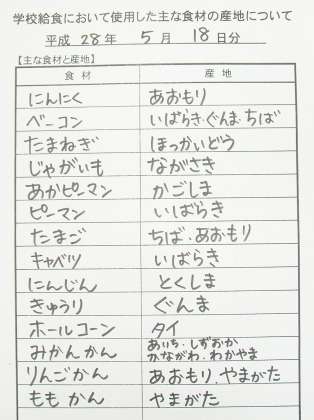 学校給食において使用した主な食材の産地について
平成 28 年 5 月 18 日分
【主な食材と産地】
食材 産地
にんにく あおもり
ベーコン いばらき.ぐんま.ちば
たまねぎ ほっかいどう
じゃがいも ながさき
あかピーマン かごしま
ピーマン いばらき
たまご ちば.あおもり
キャベツ いばらき
にんじん とくしま
きゅうり ぐんま
ホールコーン タイ
みかんかん あいち.しずおか
かながわ.わかやま
りんごかん あおもり.やまがた
ももかん やまがた